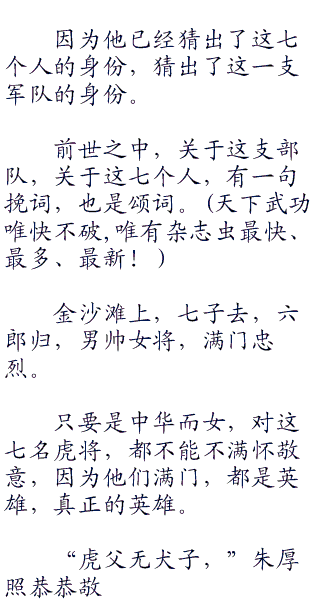 因为他已经猜出了这七
个人的身份，猜出了这一支
军队的身份。
前世之中，关于这支部
队，关于这七个人，有一句
挽词，也是颂词。(天下武功
唯快不破,唯有杂志虫最快、
最多、最新！)
金沙滩上，七子去，六
郎归，男帅女将，满门忠
烈。
只要是中华而女，对这
七名虎将，都不能不满怀敬
意，因为他们满门，都是英
雄，真正的英雄。
“虎父无犬子，”朱厚
照恭恭敬